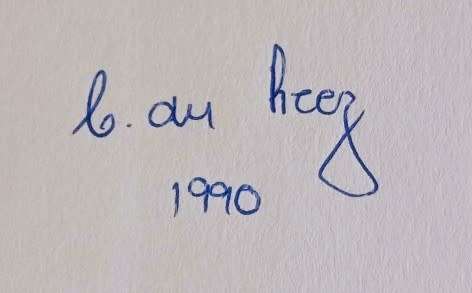 b. du heez
1990